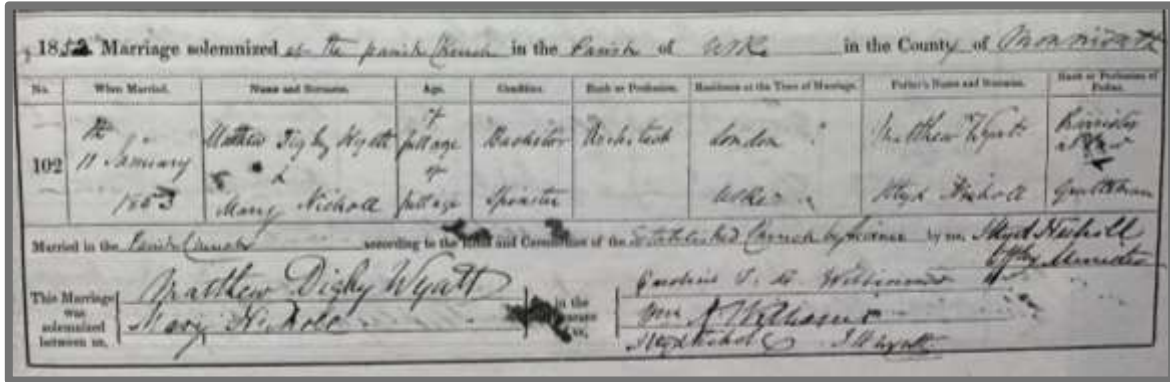 1853 Marriage solemnized at the parish Church in the Parish of Usk in the County of Monmouth
No. When Married. Name and Surname. Age. Condition. Rank or Profession. Residence at the Time of Marriage. Father's Name and Surname. Rank or Profession of Father.
102 11th January 1853
Mathew Digby Wyatt of full age Bachelor Architect London Matthew Wyatt Barrister at Law
&
Mary Nicholl of full age Spinster Usk Iltyd Nicholl Gentleman
Married in the Parish Church according to the Rites and Ceremonies of the Established Church by licence by me, Iltyd Nicholl
Offg Minister
This Marriage was solemnized between us, Matthew Digby Wyatt
Mary Nicholl
in the Presence of us, Williams
Wm Williams
Iltyd Nicholl Wyatt